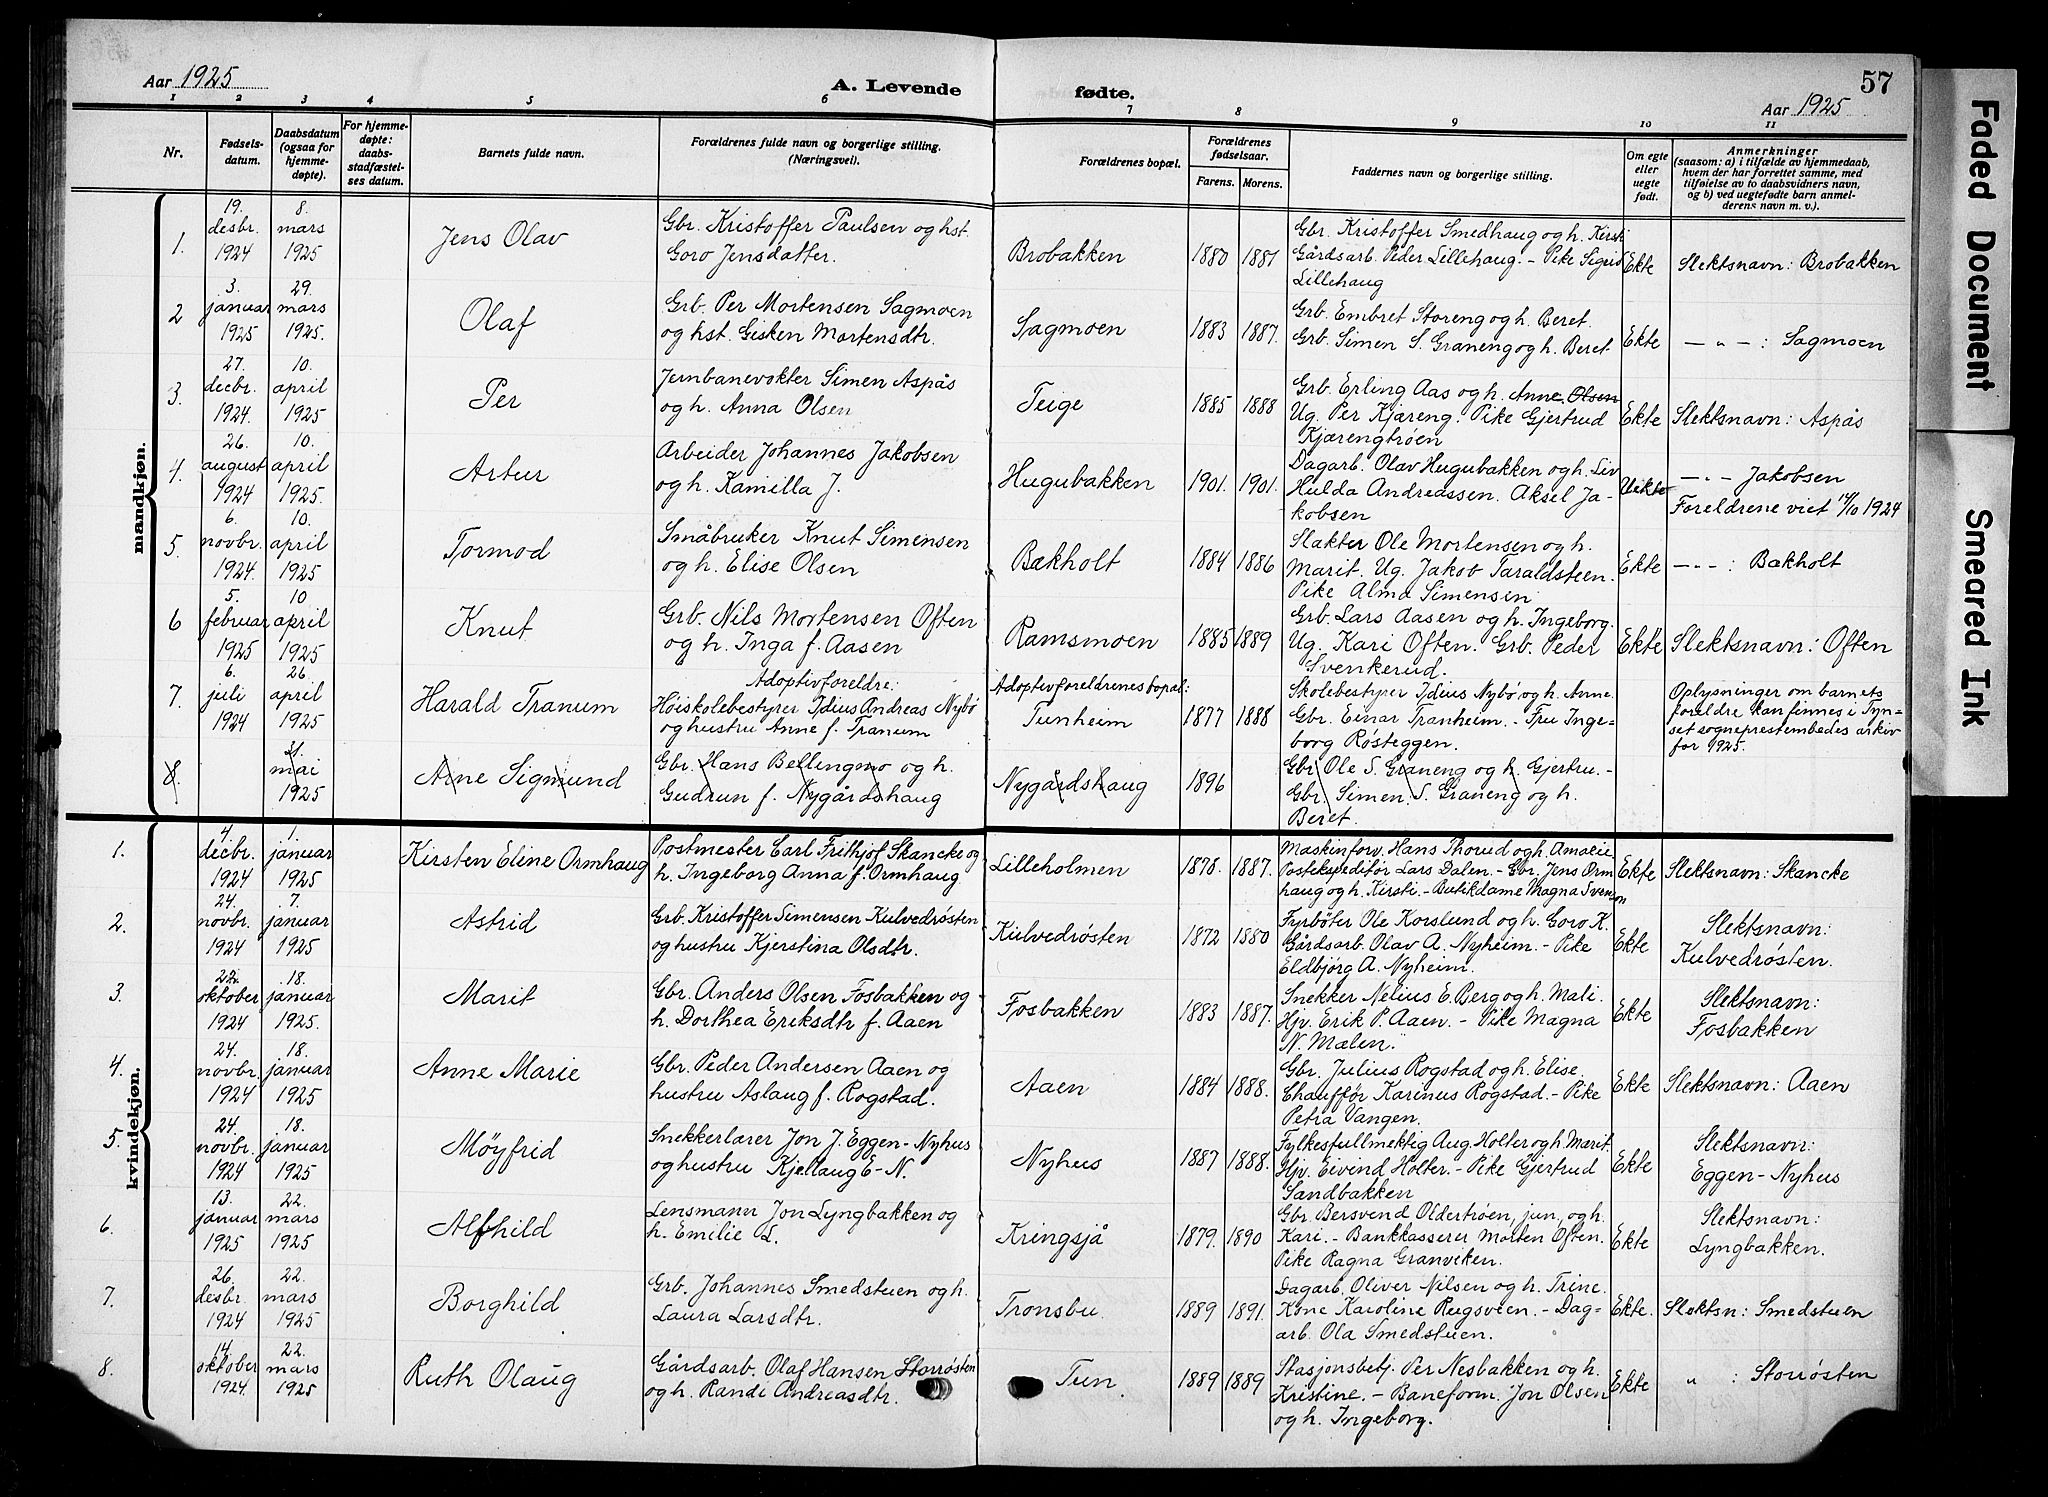 Aar 1925
A. Levende fødte.
57
Aar 1925
1 2 3 4 5 6 7 8 9 10 11
Nr.
Fødsels-
datum.
Daabsdatum
(ogsaa for
hjemme-
døpte).
For hjemme-
døpte:
daabs-
stadfæstel-
ses datum.
Barnets fulde navn.
Forældrenes fulde navn og borgerlige stilling.
(Næringsvei).
Forældrenes bopæl.
Forældrenes
fødselsaar.
Farens. Morens.
Faddernes navn og borgerlige stilling.
Om egte
eller
uegte
født.
Anmerkninger
(saasom: a) i tilfælde av hjemmedaab,
hvem der har forrettet samme, med
tilføielse av to daabsvidners navn,
og b) ved uegtefødte barn anmel-
derens navn m. v.).
mandkjøn.
1.
19.
desbr.
1924
8.
mars
1925
Jens Olav
Gbr. Kristoffer Paulsen og hst.
Goro Jensdatter.
Brobakken
1880
1881
Gbr. Kristoffer Smedhaug og h. Kirsti
Gårdsarb. Peder Lillehaug. - Pike Sigrid
Lillehaug
Ekte
Slektsnavn: Brobakken
2
3.
januar
1925
29.
mars
1925.
Olaf
Grb. Per Mortensen Sagmoen
og hst. Gisken Mortensdtr.
Sagmoen
1883
1887.
Grb. Embret Storeng og h. Beret.
Grb. Simen S. Graneng og h. Beret.
Ekte
— " — : Sagmoen
3.
27.
decbr.
1924
10.
april
1925
Per
Jernbanevokter Simen Aspås
og h. Anna Olsen
Teige
1885
1888
Grb. Erling Aas og h. Anne Olsen
Ug. Per Kjæreng. Pike Gjertrud
Kjærengtrøen
Ekte
Slektsnavn: Aspås
4
26.
august
1924
10.
april
1925.
Artur
Arbeider Johannes Jakobsen
og h. Kamilla J.
Hugubakken
1901.
1901.
Dagarb. Olav Hugubakken og h. Liv
Hulda Andreassen. Aksel Ja-
kobsen
Uekte
— " — Jakobsen
Foreldrene viet 14/10 1924
5.
6.
novbr.
1924.
10.
april
1925
Tormod
Småbruker Knut Simensen
og h. Elise Olsen
Bakholt
1884
1886
Slakter Ole Mortensen og h.
Marit. Ug. Jakob Taraldsteen.
Pike Alma Simensen
Ekte
— " — : Bakholt
6
5.
februar
1925
10
april
1925
Knut
Grb. Nils Mortensen Often
og h. Inga f. Aasen
Ramsmoen
1885
1889
Grb. Lars Aasen og h. Ingeborg.
Ug. Kari Often. Grb. Peder
Svenkerud.
Ekte
Slektsnavn: Often
7.
6.
juli
1924
26.
april
1925
Harald Tranum
Adoptivforeldre:
Høiskolebestyrer Idius Andreas Nybø
og hustru Anne f. Tranum
Adoptivforeldrenes bopæl:
Tunheim
1877
1888
Skolebestyrer Idius Nybø og h. Anne.
Gbr. Einar Tranheim. - Fru Inge-
borg Røsteggen.
Oplysninger om barnets
foreldre kan finnes i Tyn-
set sogneprestembedes arkiv
for 1925.
8.
21.
mai
1925
Arne Sigmund
Gbr. Hans Bellingmo og h.
Gudrun f. Nygårdshaug
Nygårdshaug
1896
Gbr. Ole S. Graneng og h. Gjertru. -
Gbr. Simen S. Graneng og h.
Beret.
kvindekjøn.
1.
4.
decbr.
1924
1.
januar
1925
Kirsten Eline Ormhaug
Postmester Carl Frithjof Skancke og
h. Ingeborg Anna f. Ormhaug
Lilleholmen
1878.
1887.
Maskinforv. Hans Thorud og h. Amalie.
Postekspeditør Lars Dalen. - Gbr. Jens Orm
haug og h. Kirsti. - Butikdame Magna Svensen
Ekte
Slektsnavn: Skancke
2.
24.
novbr.
1924
7.
januar
1925
Astrid
Grb. Kristoffer Simensen Kulvedrøsten
og hustru Kjerstina Olsdtr.
Kulvedrøsten
1872
1880
Fyrbøter Ole Korslund og h. Goro K.
Gårdsarb. Olav A. Nyheim. - Pike
Eldbjørg A. Nyheim.
Ekte
Slektsnavn:
Kulvedrøsten.
3.
22.
oktober
1924
18.
januar
1925.
Marit
Gbr. Anders Olsen Fosbakken og
h. Dorthea Eriksdtr f. Aaen
Fosbakken
1883
1887.
Snekker Nelius E. Berg og h. Mali.
Hjv. Erik P. Aaen. - Pike Magna
N. Mælen.
Ekte
Slektsnavn:
Fosbakken
4.
24.
novbr.
1924
18.
januar
1925
Anne Marie
Gbr. Peder Andersen Aaen og
hustru Aslaug f. Rogstad.
Aaen
1884
1888.
Gbr. Julius Rogstad og h. Elise.
Chauffør Karinus Rogstad. - Pike
Petra Vangen.
Ekte
Slektsnavn: Aaen
5.
24.
novbr.
1924
18.
januar
1925
Møyfrid
Snekkerlærer Jon J. Eggen-Nyhus
og hustru Kjellaug E-N.
Nyhus
1887
1888.
Fylkesfullmektig Aug. Holter og h. Marit.
Hjv. Eivind Holter. - Pike Gjertrud
Sandbakken
Ekte
Slektsnavn:
Eggen-Nyhus
6.
13.
januar
1925
22.
mars
1925
Alfhild
Lensmann Jon Lyngbakken og
h. Emilie L.
Kringsjå
1879.
1890
Gbr. Bersvend Oldertrøen, jun, og h.
Kari. - Bankkasserer Morten Often.
Pike Ragna Granviken.
Ekte
Slektsnavn:
Lyngbakken.
7.
26.
desbr.
1924
22.
mars
1925
Borghild
Grb. Johannes Smedstuen og h.
Laura Larsdtr.
Tronsbu
1889
1891.
Dagarb. Oliver Nilsen og h. Trine.
Kone Karoline Rugsveen. - Dag-
arb. Ola Smedstuen.
Ekte.
Slektsn: Smedstuen
8.
14.
oktober
1924.
22.
mars
1925
Ruth Olaug
Gårdsarb. Olaf Hansen Storrøsten
og h. Randi Andreasdtr.
Tun.
1889
1889
Stasjonsbetj. Per Nesbakken og h.
Kristine. - Baneform. Jon Olsen
og h. Ingeborg.
Ekte
" : Storrøsten
Faded Document
Smeared Ink